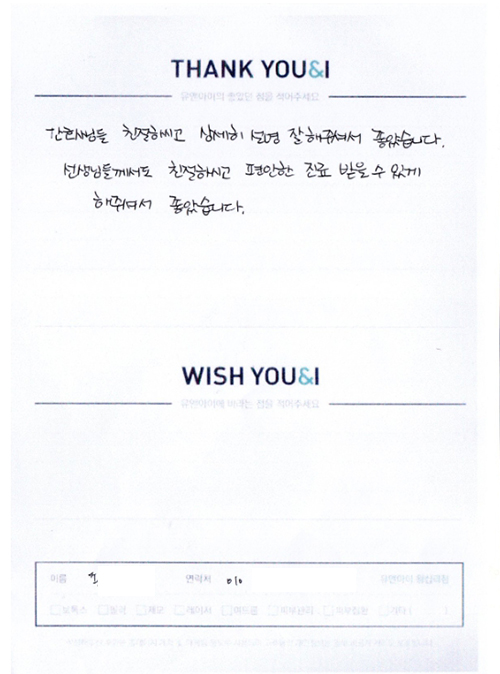 THANK YOU&I
유앤아이의 좋았던 점을 적어주세요
간호사쌤들 친절하시고 상세히 설명 잘해주셔서 좋았습니다.
선생님들께서도 친절하시고 편안한 진료 받을수있게
해줘서 좋았습니다.
WISH YOU&I
유앤아이에 바라는 점을 적어주세요
이름 연락처 010 유앤아이
보톡스 필러 제모 레이저 여드름 피부관리 기타 ( )